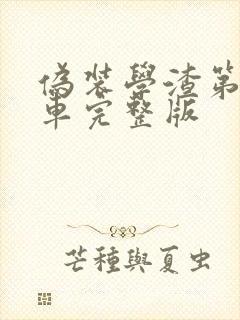 偽装學渣第
車完整版
芒種與夏虫